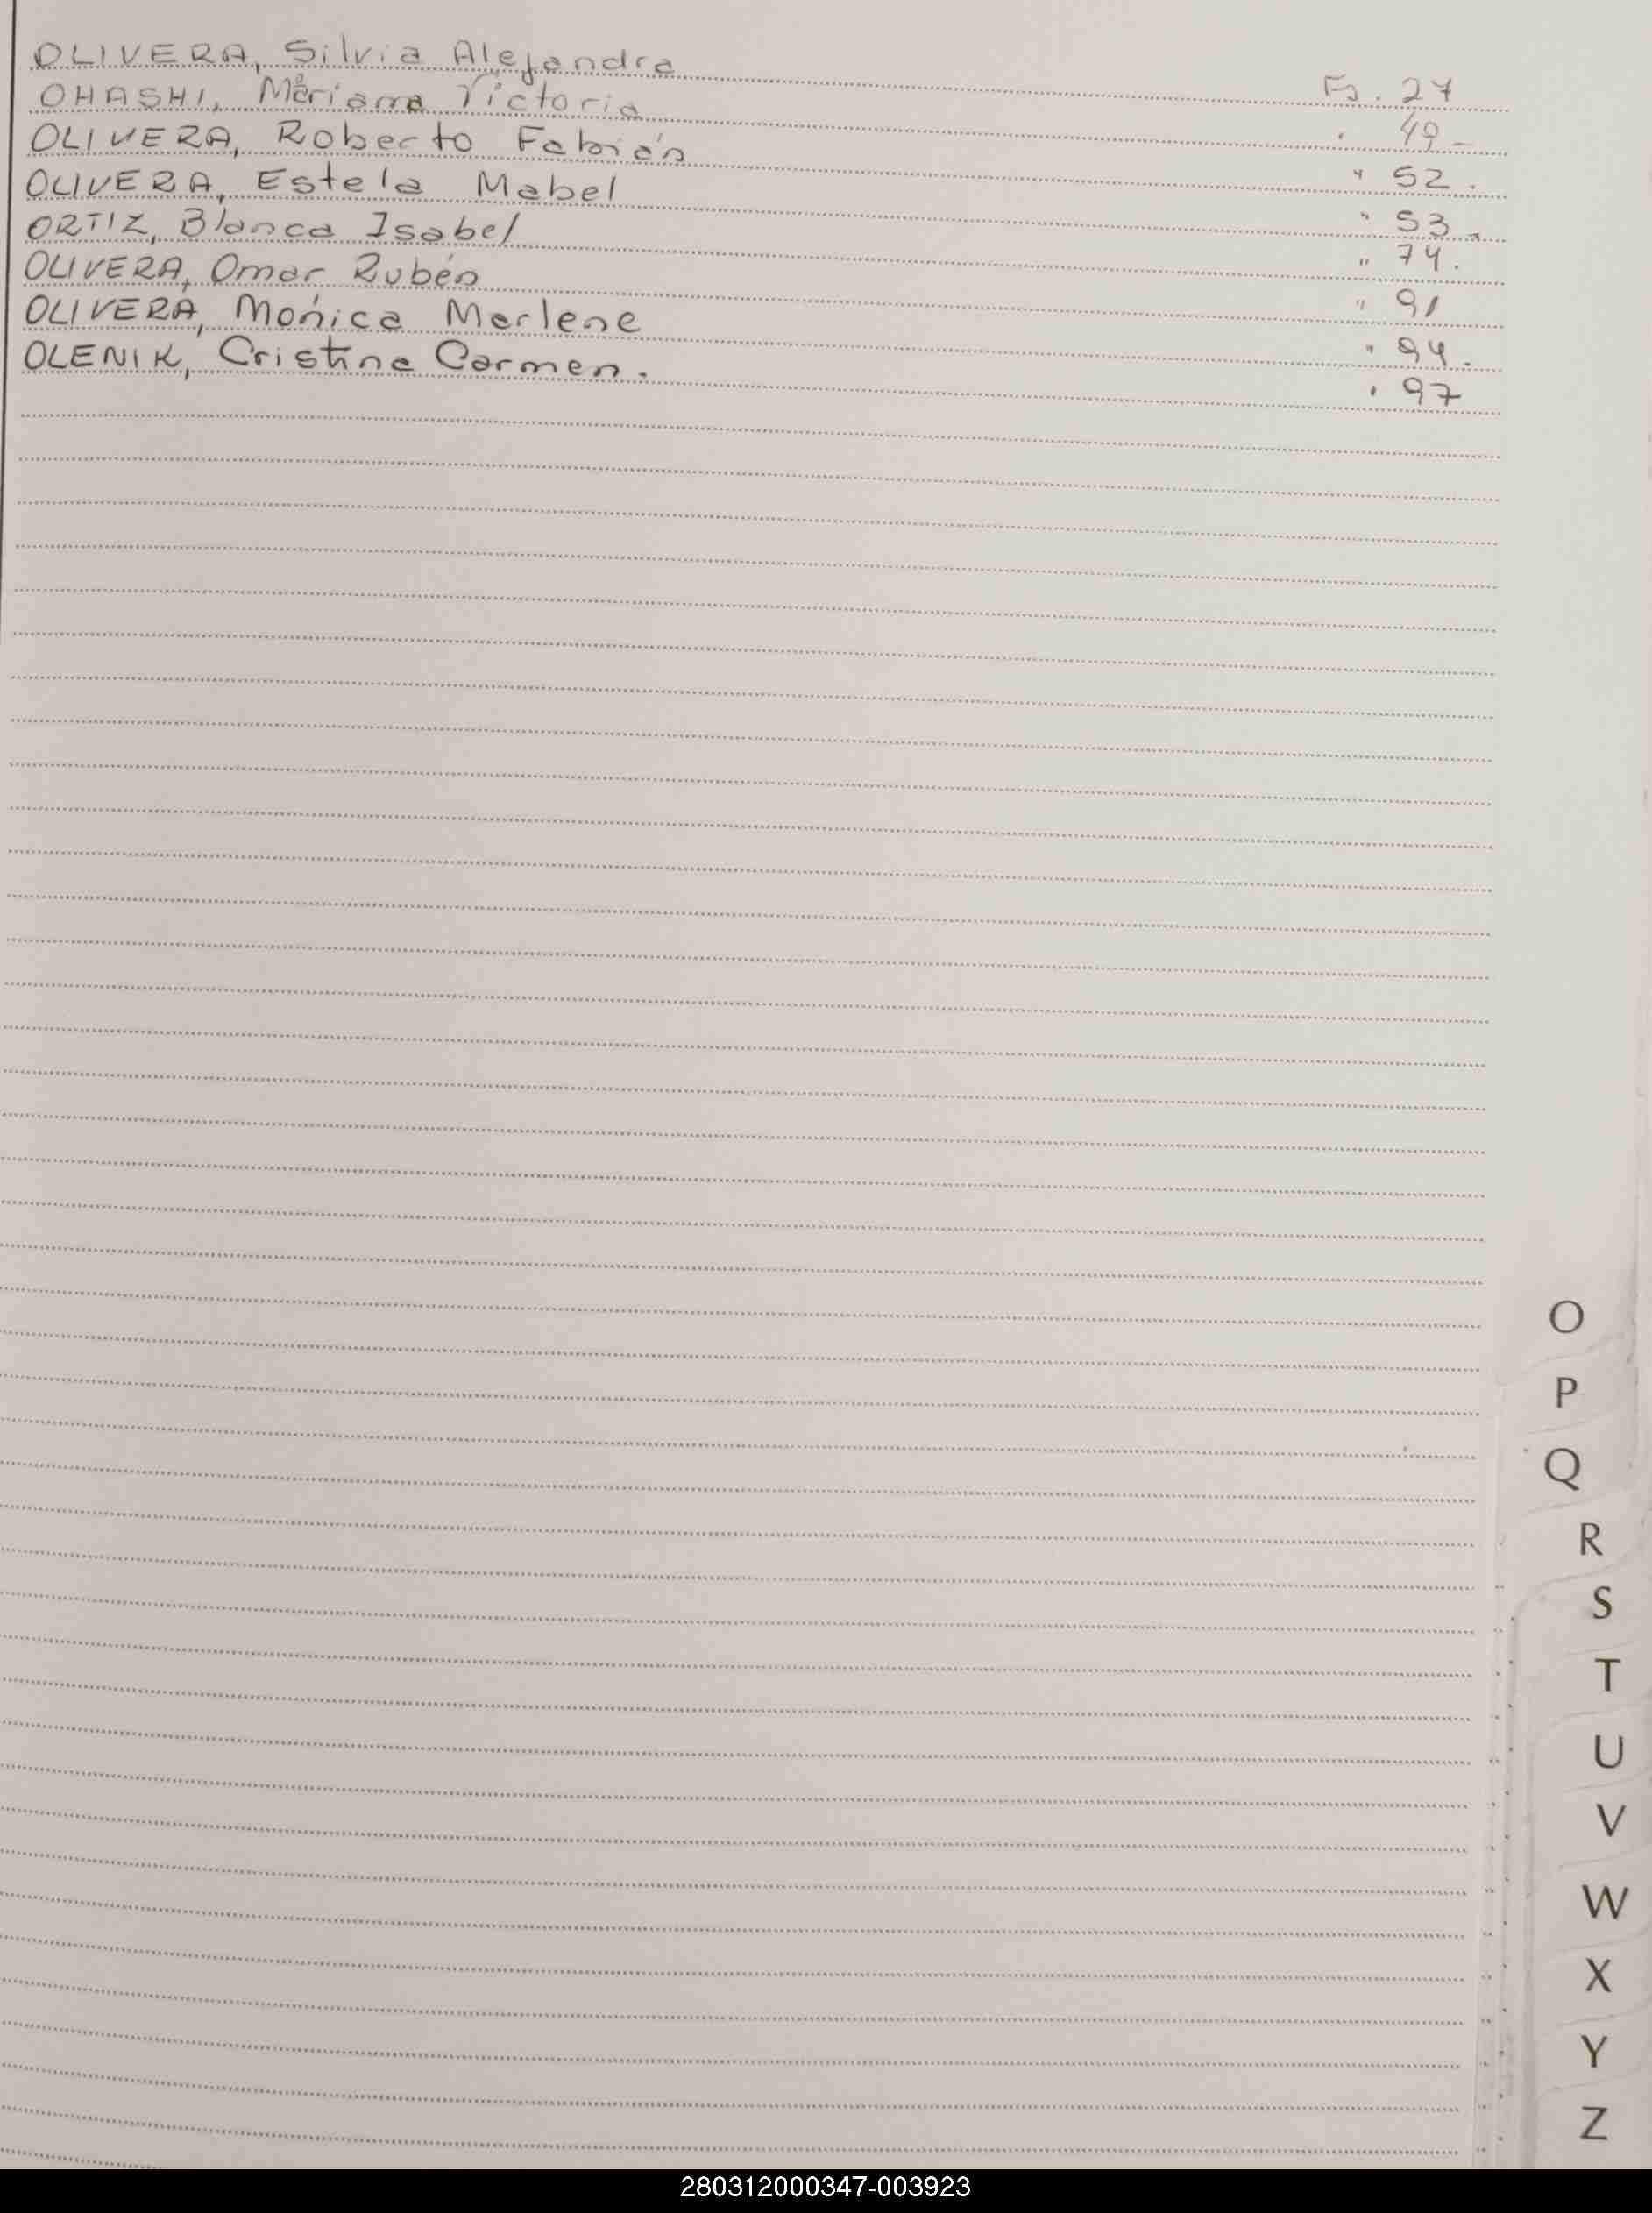 OLIVERA, Silvia Alejandra Fs. 27
OHASHI, Mariana Victoria 49 -
OLIVERA, Roberto Fabián " 52.
OLIVERA, Estela Mabel " 53.
ORTIZ, Blanca Isabel " 74.
OLIVERA, Omar Rubén " 91
OLIVERA, Mónica Marlene " 94.
OLENIK, Cristina Carmen. " 97
O
P
Q
R
S
T
U
V
W
X
Y
Z
280312000347-003923